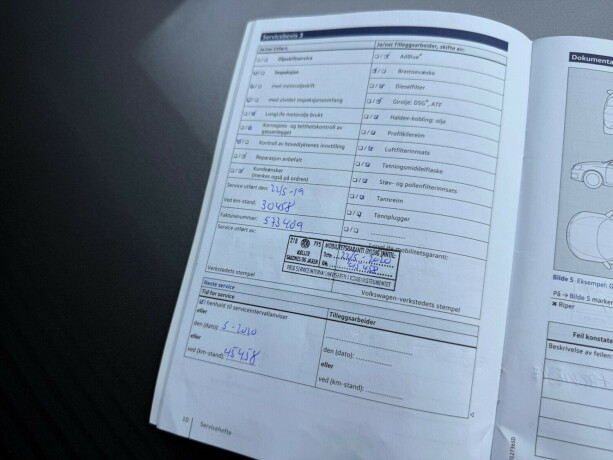 Servicebevis 3
Ja/nei Utført:
Oljeskiftservice
Inspeksjon
med motoroljeskift
med utvidet inspeksjonsomfang
LongLife motorolje brukt
Korrosjons- og tetthetskontroll av
gassanlegget
Kontroll av hovedlyktenes innstilling
Reparasjon anbefalt
Kundeønsker
(merkes også på ordren)
Service utført den: 22/5-19
Ved km-stand: 30458
Fakturanummer: 573409
Service utført av:
Verkstedets stempel
Ja/nei Tilleggsarbeider, skifte av:
AdBlue®
Bremsevæske
Dieselfilter
Girolje: DSG®, ATF
Haldex-kobling: olje
Profilkilereim
Luftfilterinnsats
Tetningsmiddelflaske
Støv- og pollenfilterinnsats
Tannreim
Tennplugger
LongLife mobilitetsgaranti:
MOBILITETSGARANTI GYLDIG INNTIL:
Volkswagen-verkstedets stempel
Neste service
Tid for service
i henhold til serviceintervallanviser
eller
den (dato): 5-2020
eller
ved (km-stand): 45458
Tilleggsarbeider
den (dato):
eller
ved (km-stand):
10
Servicehefte
Dokumenta
Bilde 5 Eksempel: G
På → Bilde 5 marker
Riper
Feil konstate
Beskrivelse av feilen: